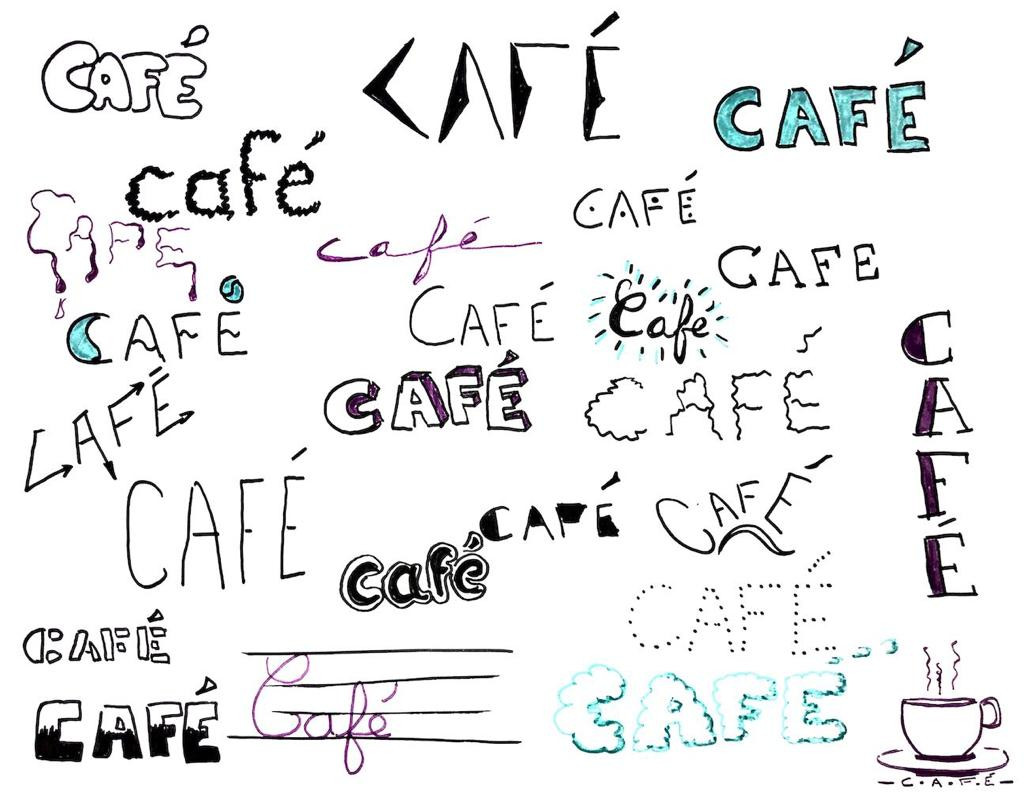 CAFÉ
CAFÉ
CAFÉ
café
CAFÉ
CAFE
café
CAFE
CAFÉ
CAFÉ
Café
CAFÉ
CAFÉ
CAFÉ
CAFÉ
CAFÉ
CAFÉ
CAFÉ
CAFÉ
café
CAFÉ
CAFÉ
CAFÉ
Café
CAFÉ
C.A.F.É